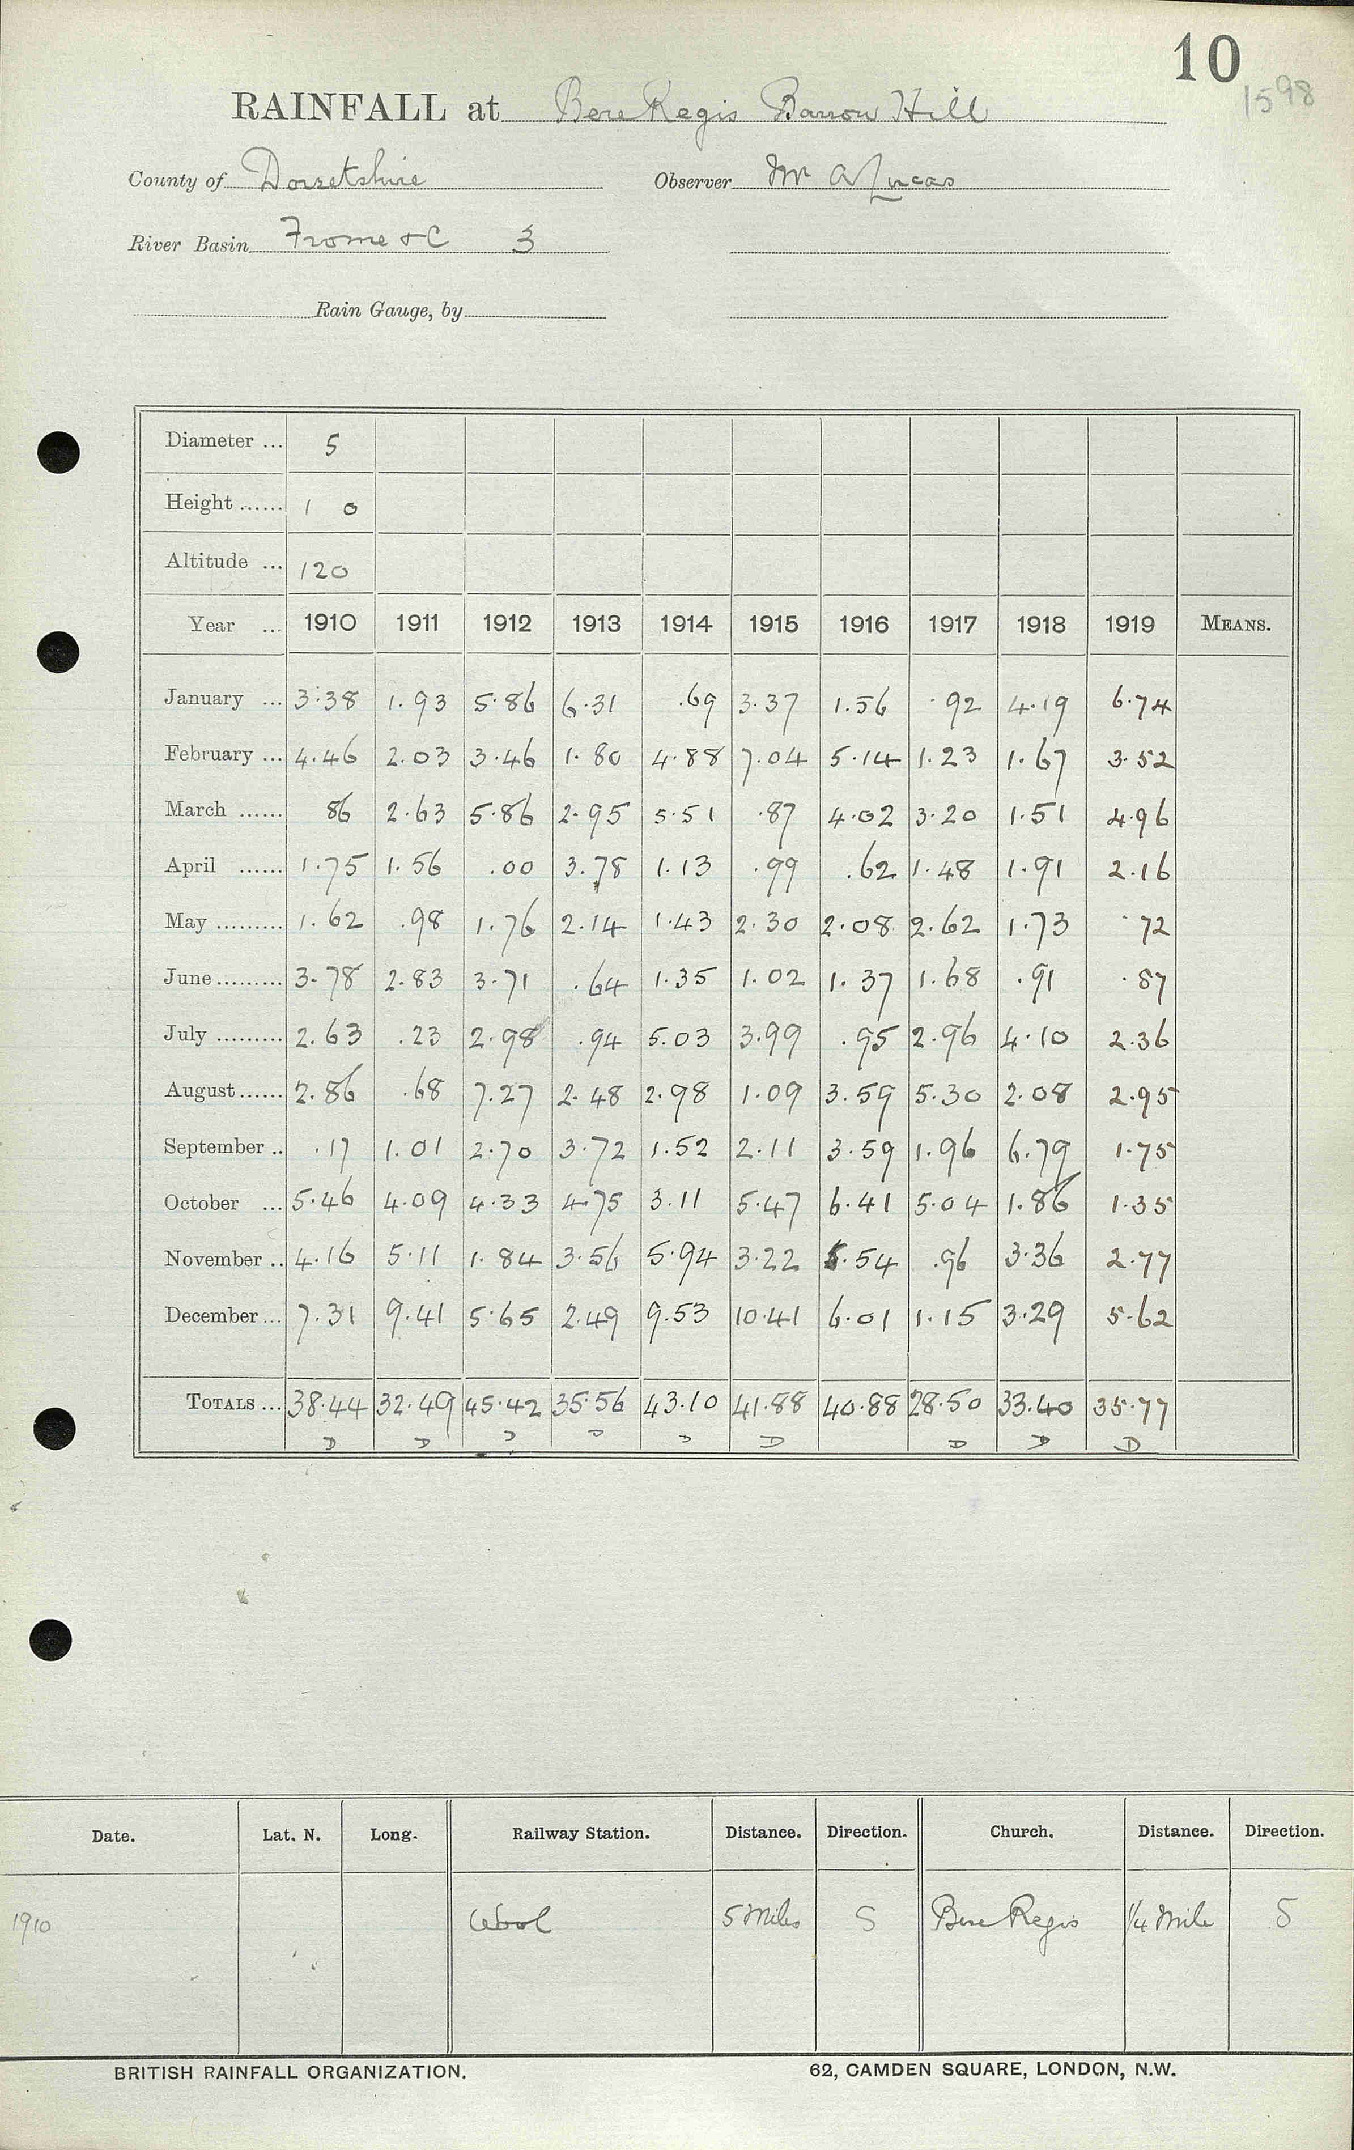 10
1598
RAINFALL at Bere Regis Barrow Hill
County of Dorsetshire Observer Mr A Lucas
River Basin Frome & C 3
Rain Gauge, by
Diameter ... 5
Height ...... 1 0
Altitude ... 120
Year ... 1910 1911 1912 1913 1914 1915 1916 1917 1918 1919 MEANS.
January ... 3.38 1.93 5.86 6.31 .69 3.37 1.56 .92 4.19 6.74
February ... 4.46 2.03 3.46 1.80 4.88 7.04 5.14 1.23 1.67 3.52
March ...... 86 2.63 5.86 2.95 5.51 .87 4.02 3.20 1.51 4.96
April ...... 1.75 1.56 .00 3.78 1.13 .99 .62 1.48 1.91 2.16
May ......... 1.62 .98 1.76 2.14 1.43 2.30 2.08 2.62 1.73 .72
June ......... 3.78 2.83 3.71 .64 1.35 1.02 1.37 1.68 .91 .87
July ......... 2.63 .23 2.98 .94 5.03 3.99 .95 2.96 4.10 2.36
August ...... 2.86 .68 7.27 2.48 2.98 1.09 3.59 5.30 2.08 2.95
September .. .17 1.01 2.70 3.72 1.52 2.11 3.59 1.96 6.79 1.75
October ... 5.46 4.09 4.33 4.75 3.11 5.47 6.41 5.04 1.86 1.35
November .. 4.16 5.11 1.84 3.56 5.94 3.22 5.54 .96 3.36 2.77
December ... 7.31 9.41 5.65 2.49 9.53 10.41 6.01 1.15 3.29 5.62
TOTALS ... 38.44 32.49 45.42 35.56 43.10 41.88 40.88 28.50 33.40 35.77
D D D D D D D D D
Date. Lat. N. Long. Railway Station. Distance. Direction. Church. Distance. Direction.
1910 Wool 5 Miles S Bere Regis 1/4 Mile S
BRITISH RAINFALL ORGANIZATION. 62, CAMDEN SQUARE, LONDON, N.W.